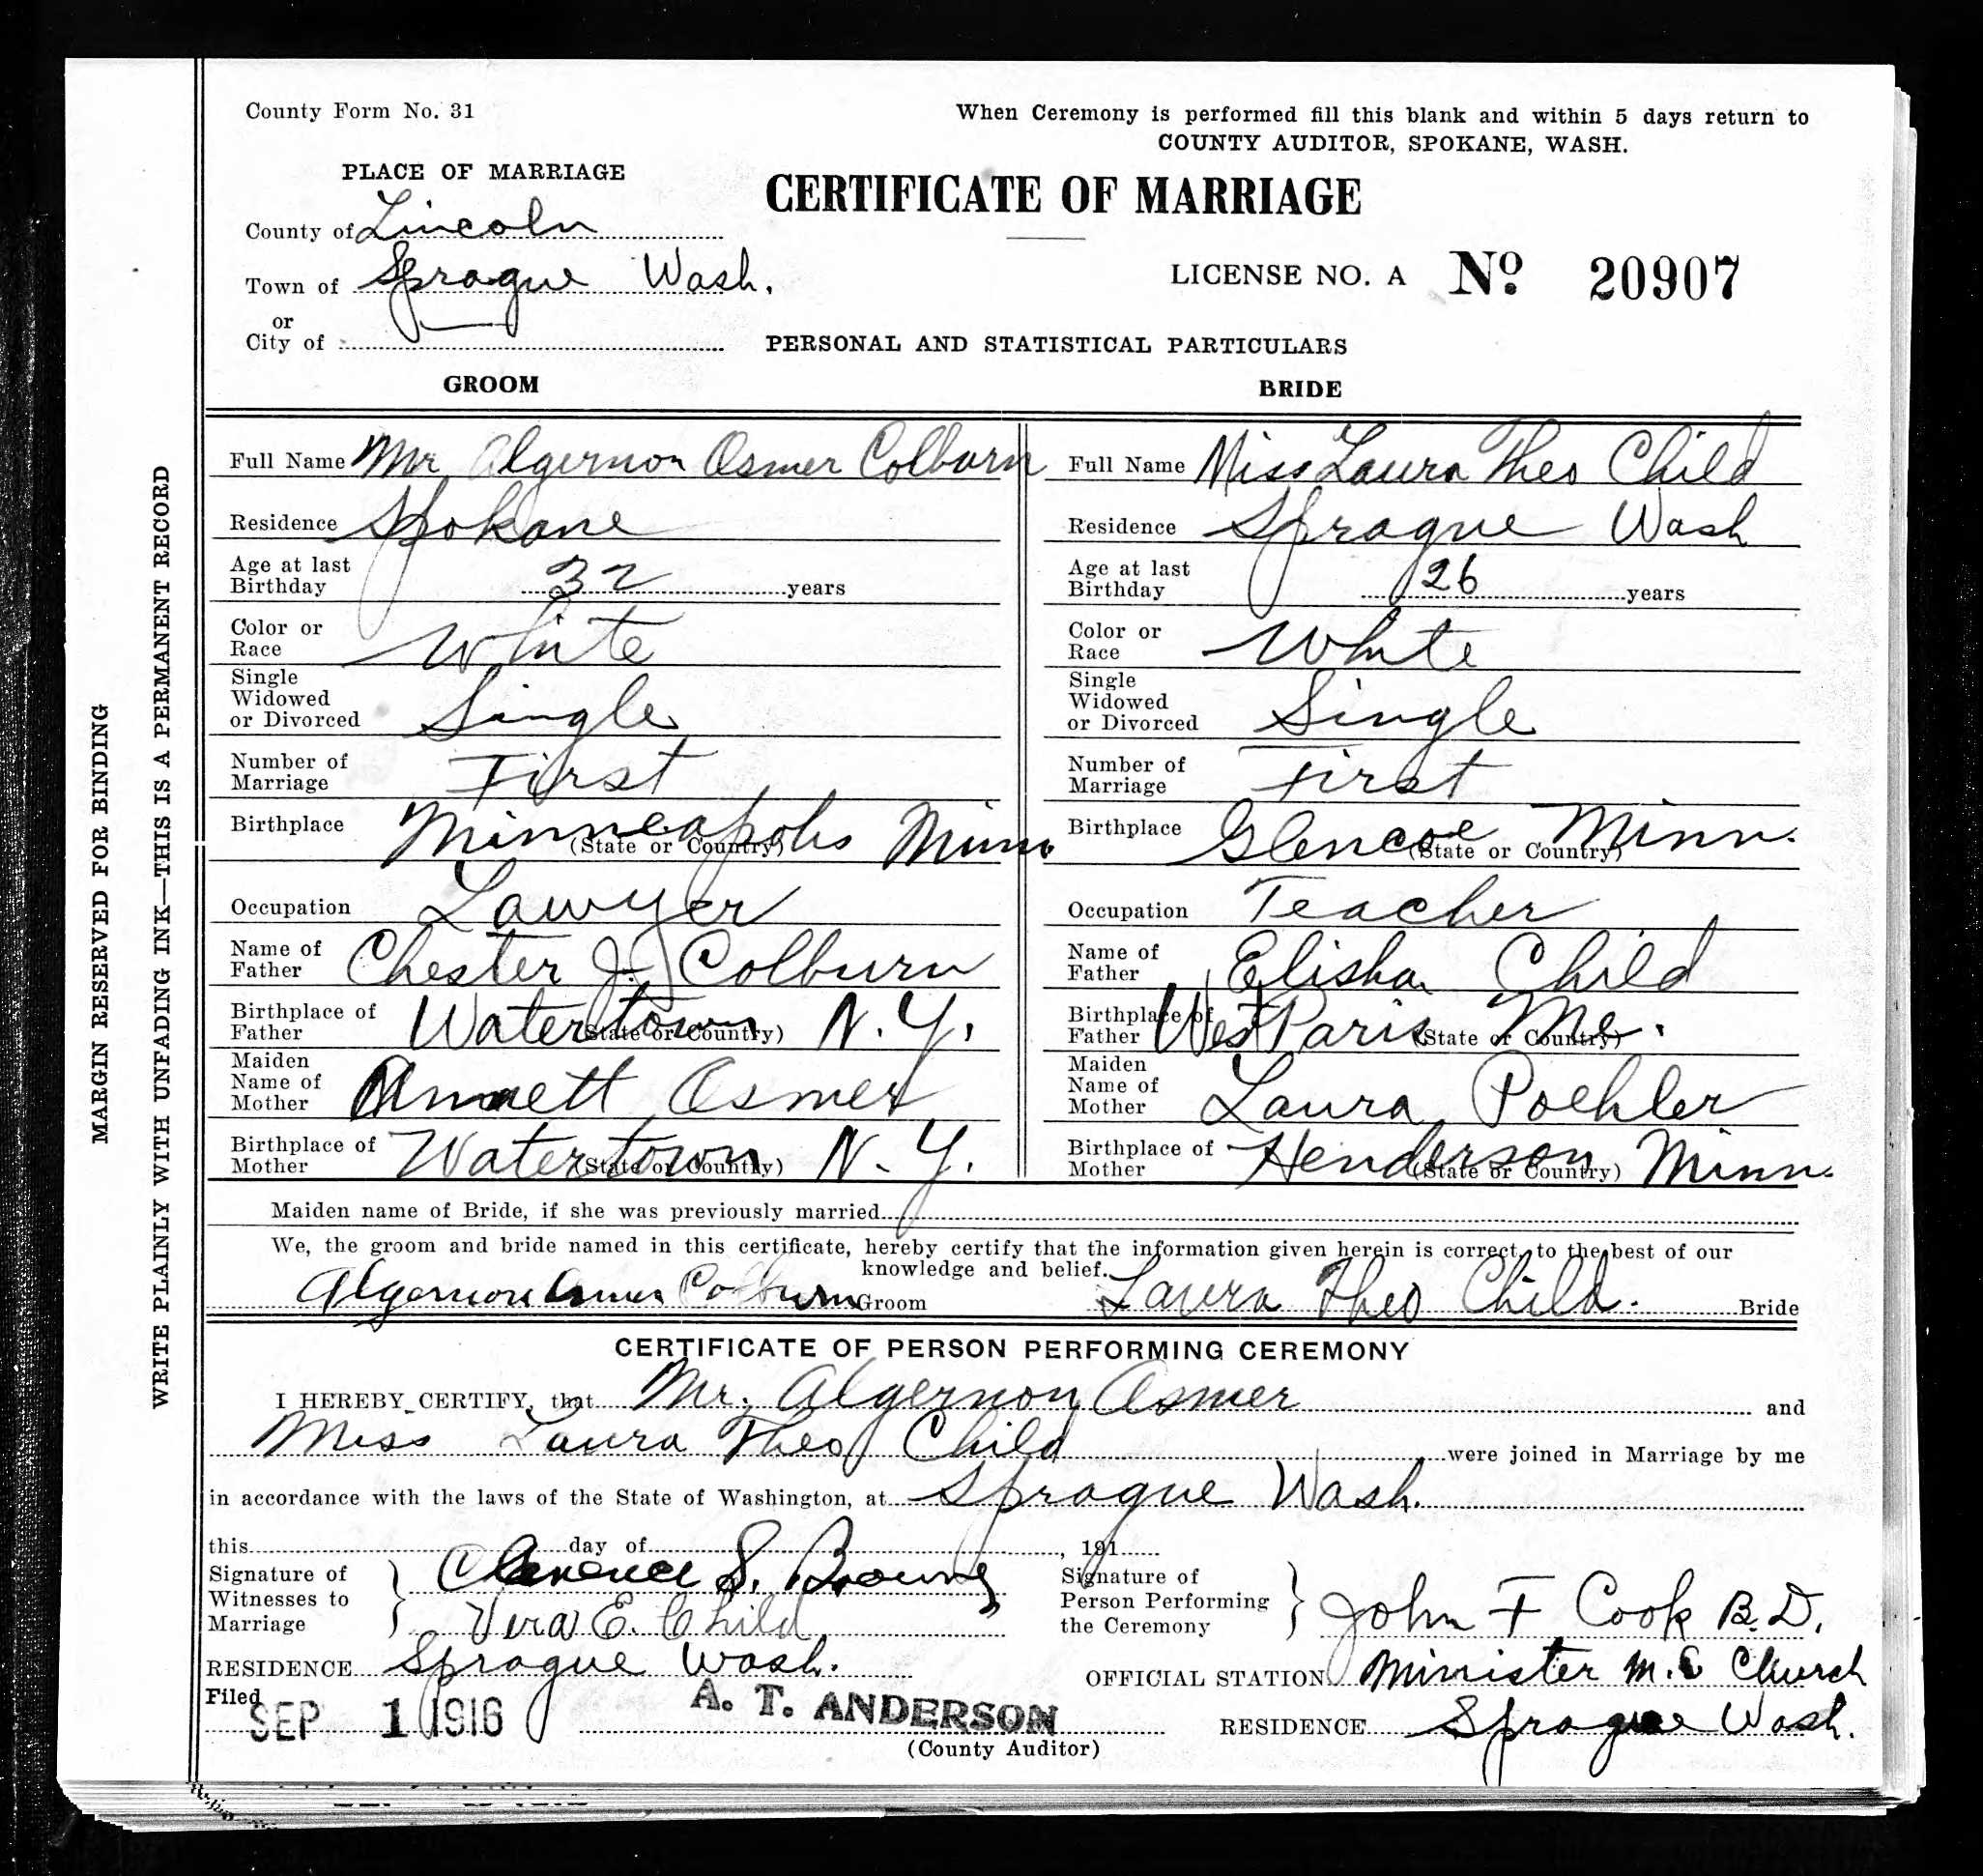 County Form No. 31
When Ceremony is performed fill this blank and within 5 days return to
COUNTY AUDITOR, SPOKANE, WASH.
PLACE OF MARRIAGE
CERTIFICATE OF MARRIAGE
County of Lincoln
Town of Sprague Wash.
or
City of
LICENSE NO. A No. 20907
PERSONAL AND STATISTICAL PARTICULARS
GROOM
Full Name Mr Algernon Osmer Colburn
Residence Spokane
Age at last
Birthday 32 years
Color or
Race White
Single
Widowed
or Divorced Single
Number of
Marriage First
Birthplace Minneapolis Minn
(State or Country)
Occupation Lawyer
Name of
Father Chester J. Colburn
Birthplace of
Father Watertown N.Y.
(State or Country)
Maiden
Name of
Mother Osmer
Birthplace of
Mother Watertown N.Y.
(State or Country)
BRIDE
Full Name Miss Laura Theo Child
Residence Sprague Wash
Age at last
Birthday 26 years
Color or
Race White
Single
Widowed
or Divorced Single
Number of
Marriage First
Birthplace Glencoe Minn.
(State or Country)
Occupation Teacher
Name of
Father Elisha Child
Birthplace of
Father West Paris Me.
(State or Country)
Maiden
Name of
Mother Laura Poehler
Birthplace of
Mother Henderson Minn.
(State or Country)
Maiden name of Bride, if she was previously married
We, the groom and bride named in this certificate, hereby certify that the information given herein is correct, to the best of our
knowledge and belief.
Algernon Osmer Colburn Groom Laura Theo Child. Bride
CERTIFICATE OF PERSON PERFORMING CEREMONY
I HEREBY CERTIFY, that Mr. Algernon Osmer and
Miss Laura Theo Child were joined in Marriage by me
in accordance with the laws of the State of Washington, at Sprague Wash.
this day of , 191
Signature of
Witnesses to
Marriage
Clarence S.
Vera E. Child
RESIDENCE Sprague Wash.
Filed SEP 1 1916
A. T. ANDERSON
(County Auditor)
Signature of
Person Performing
the Ceremony
John F Cook B.D.
OFFICIAL STATION Minister M.E Church
RESIDENCE Sprague Wash.
MARGIN RESERVED FOR BINDING
WRITE PLAINLY WITH UNFADING INK—THIS IS A PERMANENT RECORD